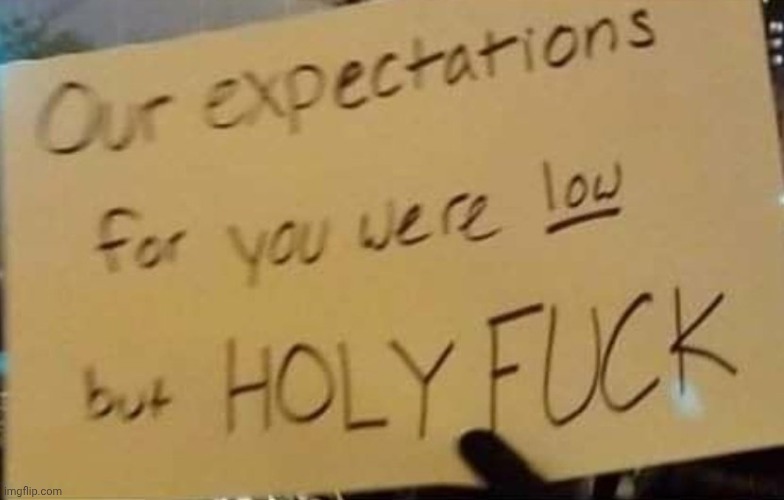 Our expectations
for you were low
but HOLY FUCK
imgflip.com